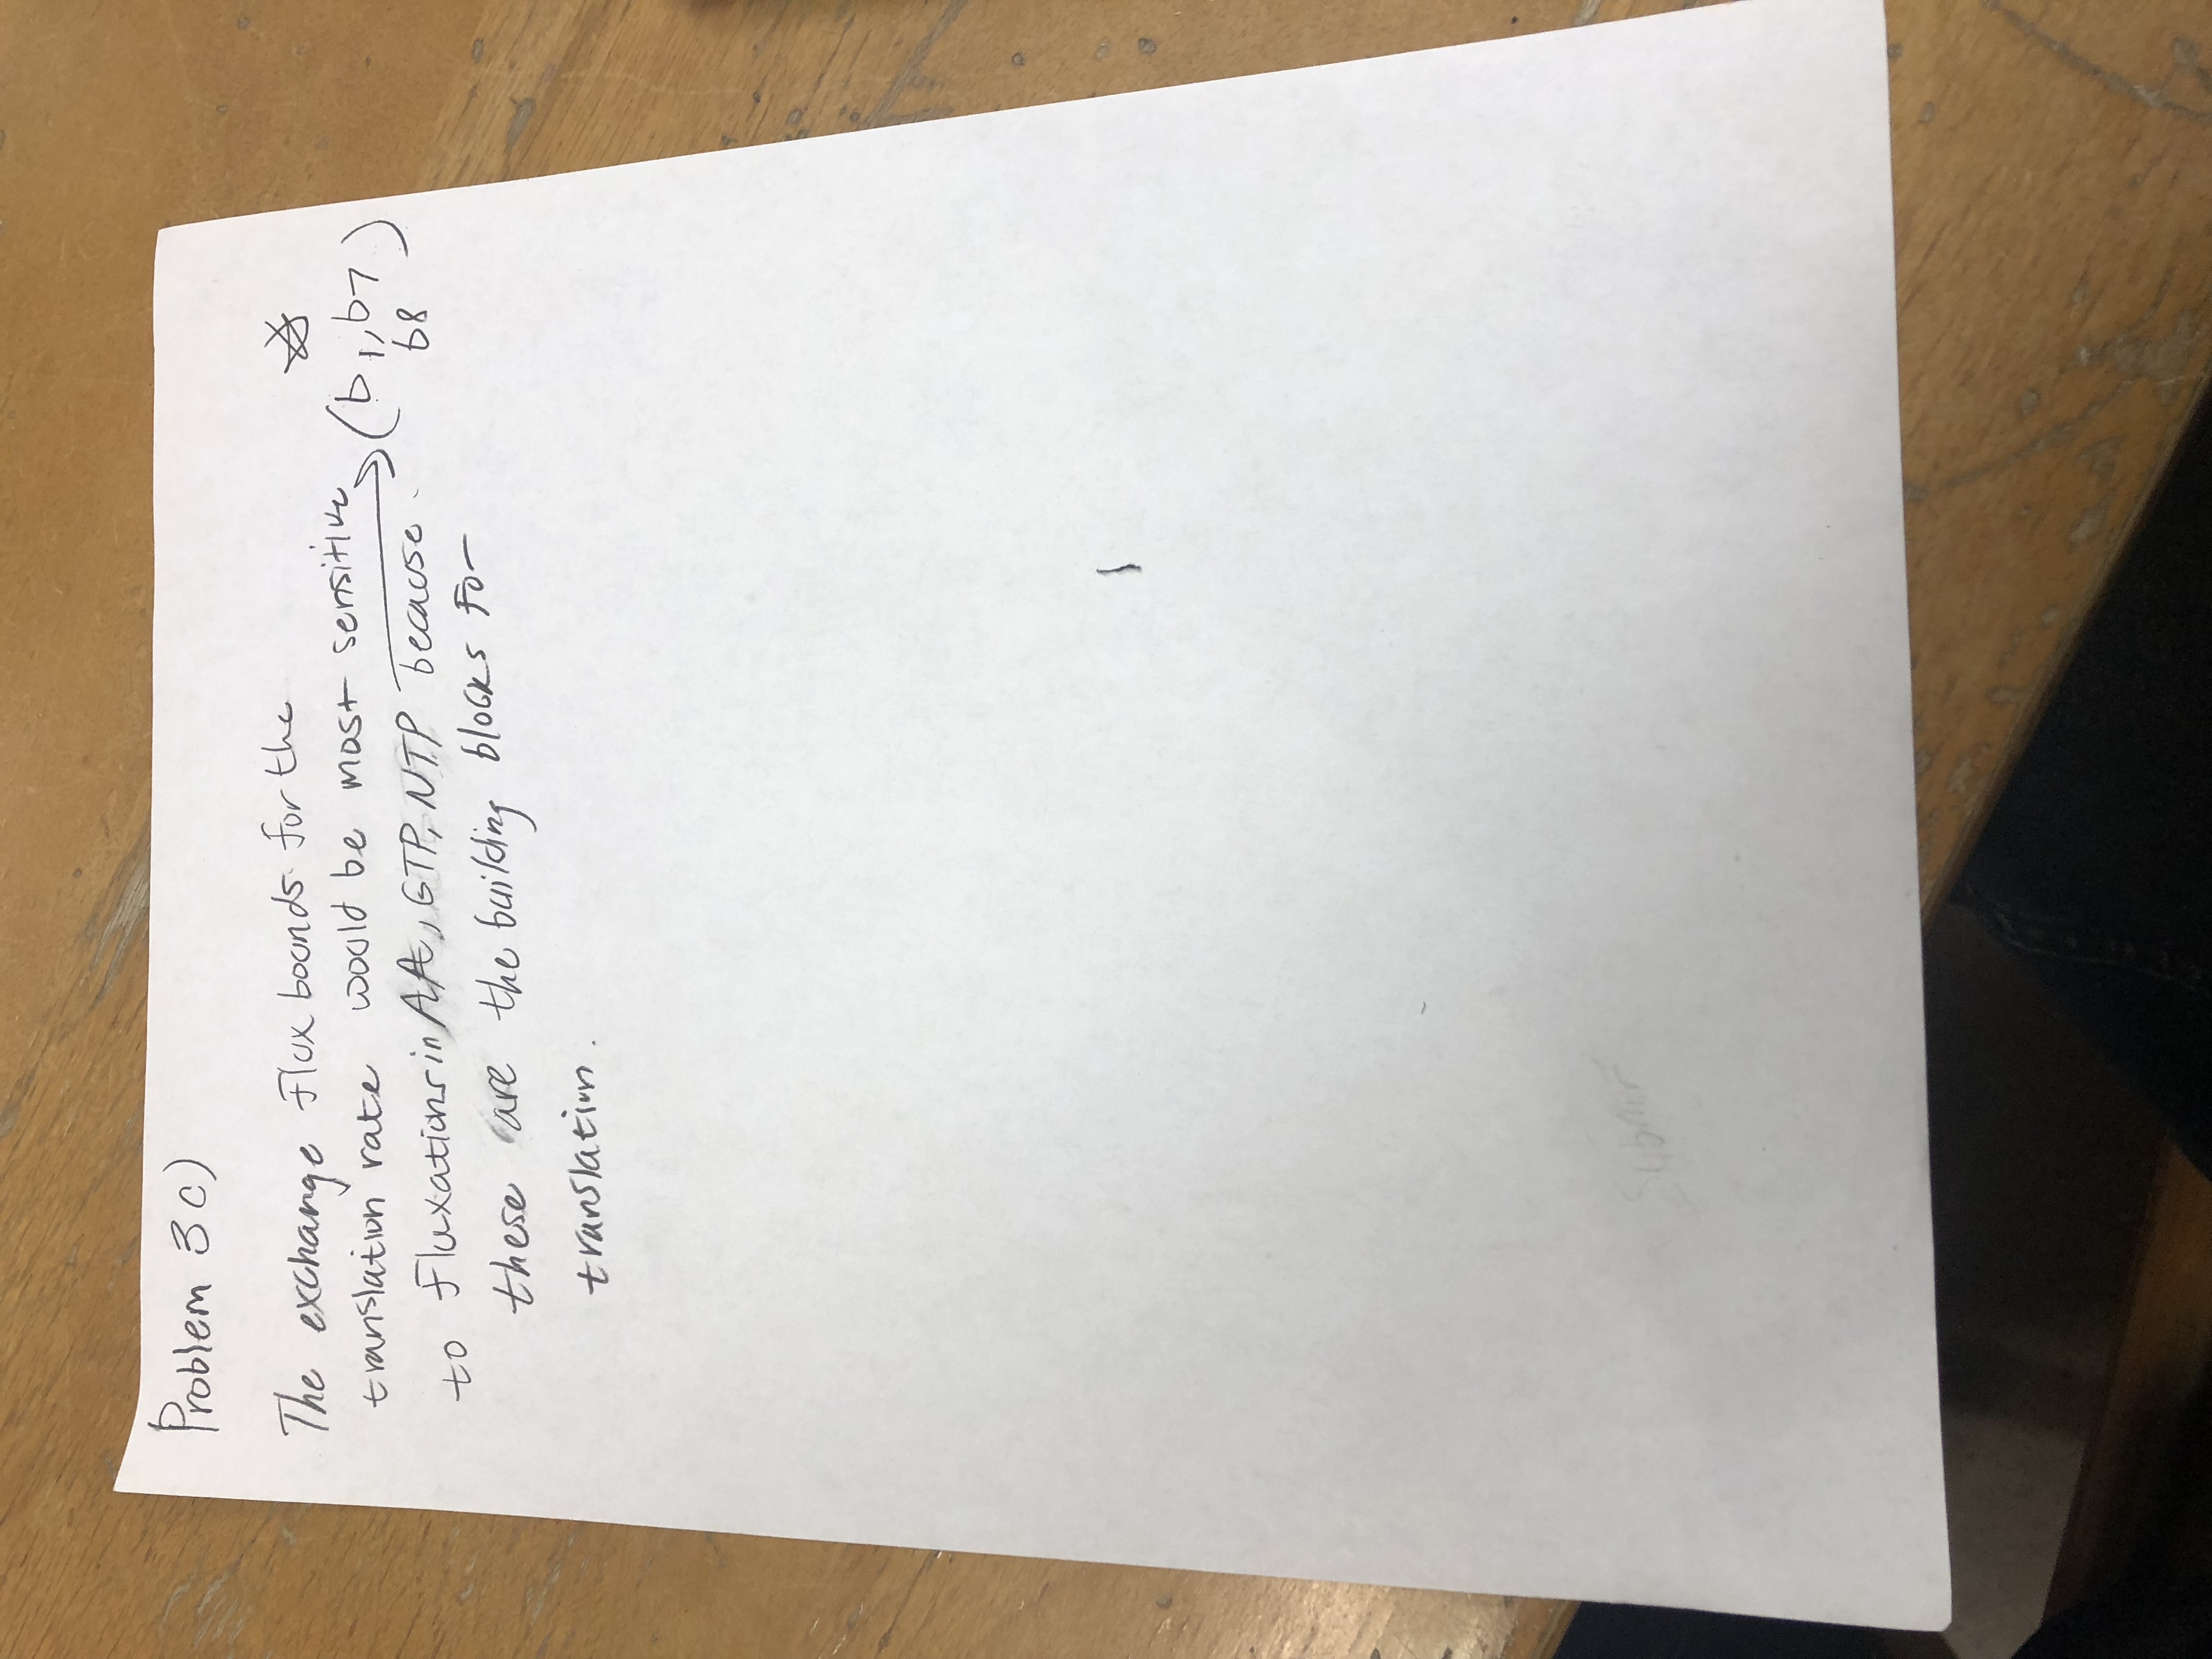 Problem 3 c)
The exchange flux bounds for the
translation rate would be most sensitive
to fluxations in AA, GTP, NTP because
(b1, b7
b8)
these are the building blocks for
translation.